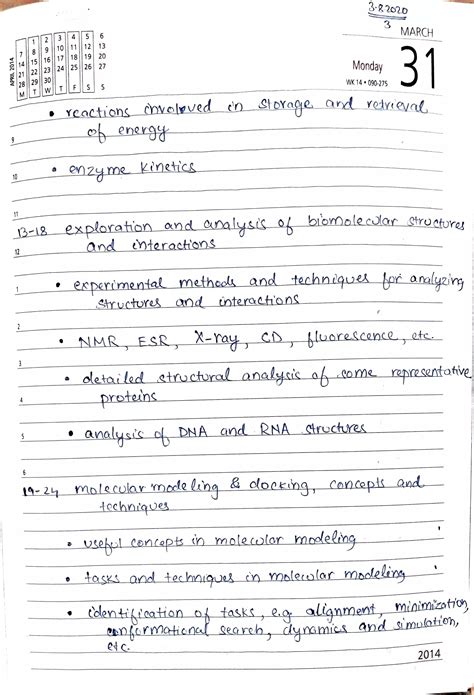 3.8.2020
3
MARCH
31
Monday
WK 14 • 090-275
APRIL 2014
1 2 3 4 5 6
7 8 9 10 11 12 13
14 15 16 17 18 19 20
21 22 23 24 25 26 27
28 29 30
M T W T F S S
• reactions involoved in storage and retrieval
of energy
9
• enzyme kinetics
10
11
13-18 exploration and analysis of biomolecular structures
and interactions
12
1
• experimental methods and techniques for analyzing
structures and interactions
2
• NMR, ESR, X-ray, CD, fluorescence, etc.
3
• detailed structural analysis of some representative
proteins
4
5
• analysis of DNA and RNA structures
6
19-24 molecular modeling & docking, concepts and
techniques
• useful concepts in molecular modeling
• tasks and techniques in molecular modeling
• identification of tasks, e.g alignment, minimization,
conformational search, dynamics and simulation,
etc.
2014